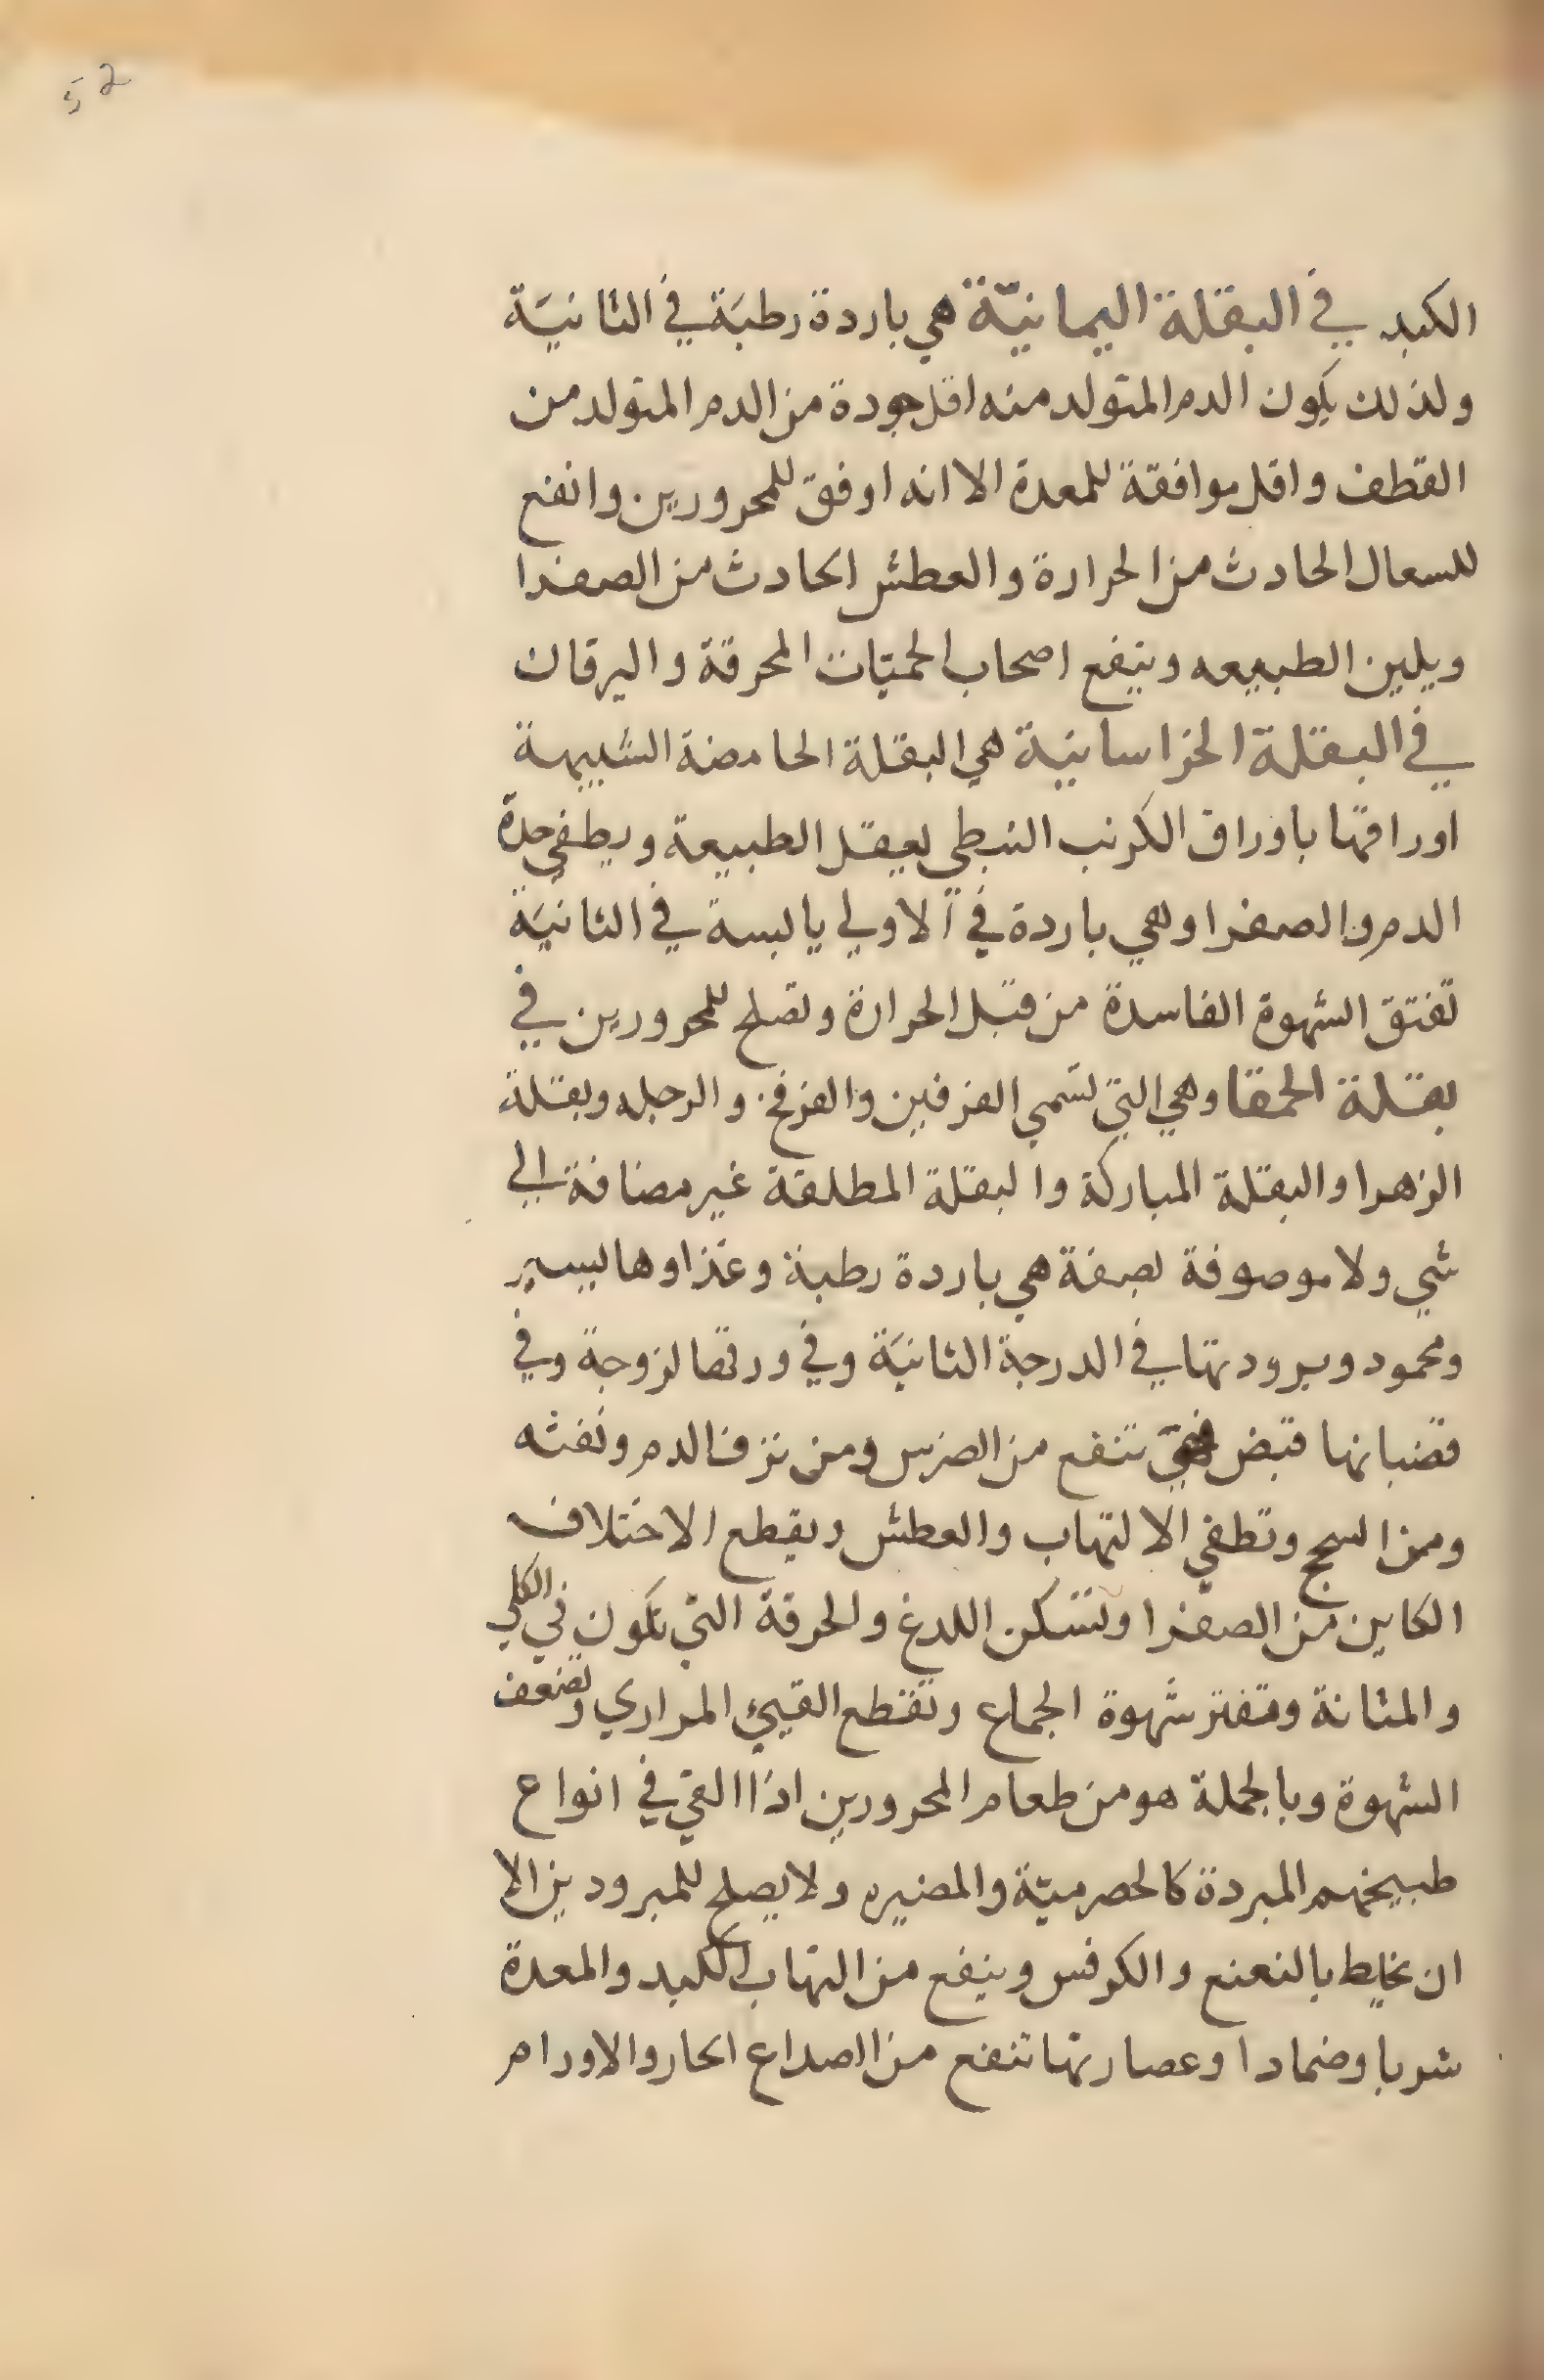 52
الكبد في البقلة اليمانيّة هي باردة رطبَة في الثانيَة
ولذلك يكون الدم المتولد منه اقل جودة من الدم المتولد من
القطف واقل موافقة للمعدة الا انه اوفق للمحرورين وانفع
للسعال الحادث من الحرارة والعطش الحادث من الصفرا
ويلين الطبيعه وينفع اصحاب الحميّات المحرقة واليرقان
في البقلة الخراسانية هي البقلة الحامضة الشبيهة
اوراقها باوراق الكرنب النبطي يعقل الطبيعة ويطفي حدة
الدم والصفرا وهي باردة في الاولي يابسة في الثانيَة
تفتق الشهوة الفاسدة من قبل الحرارة وتصلح للمحرورين في
بقلة الحمقا وهي التي تسَمي الفرفين والفرفخ والرجله وبقلة
الزهرا والبقلة المباركة والبقلة المطلقة غير مضافة الي
شي ولا موصوفة بصفة هي باردة رطبة وغذاوها يسير
ومحمود وبرودتها في الدرجة الثانيَة وفي ورقها لزوجة وفي
قضبانها قبض فهي تنفع من الضرس ومن نزف الدم ونفثه
ومن السحج وتطفي الالتهاب والعطش ويقطع الاختلاف
الكاين من الصفرا وتسكن اللدغ والحرقة التي تكون في الكلي
والمثانة وتفتر شهوة الجماع وتقطع القيئ المراري وتضعف
الشهوة وبالجملة هو من طعام المحرورين اذا القي في انواع
طبيخهم المبردة كالحصرميّة والمضيره ولا يصلح للمبرودين الا
ان يخلط بالنعنع والكرفس وينفع من التهاب الكبد والمعدة
شربا وضمادا وعصارتها تنفع من الصداع الحار والاورام